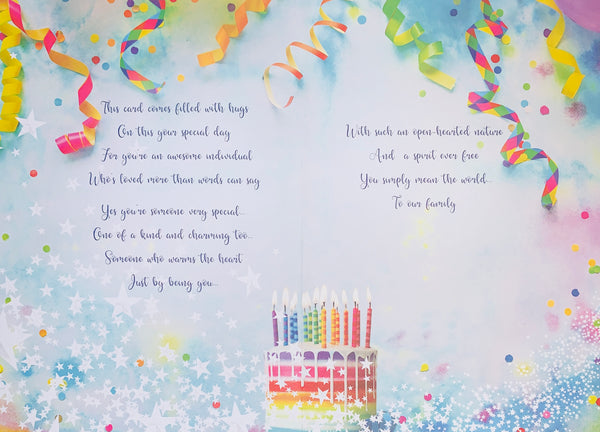 This card comes filled with hugs
On this your special day
For you're an awesome individual
Who's loved more than words can say
Yes you're someone very special...
One of a kind and charming too...
Someone who warms the heart
Just by being you...
With such an open-hearted nature
And a spirit ever free
You simply mean the world...
To our family